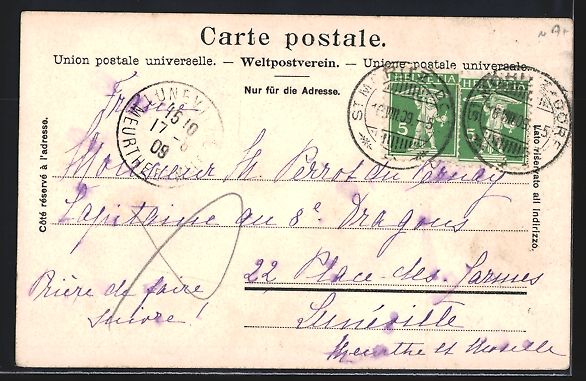 Carte postale.
Union postale universelle. – Weltpostverein. – Unione postale universale.
Nur für die Adresse.
Côté réservé à l'adresse.
Lato riservato all indirizzo.
HELVETIA HELVETIA
5 5
ST. MORITZ-DORF
LUNEVI
15 10
17 -8
09
MEURTHE
France
Monsieur St Perrot du Vernay
Capitaine au 8e Dragons
22 Place des Carmes
Lunéville
Meurthe et Moselle
Prière de faire
suivre!